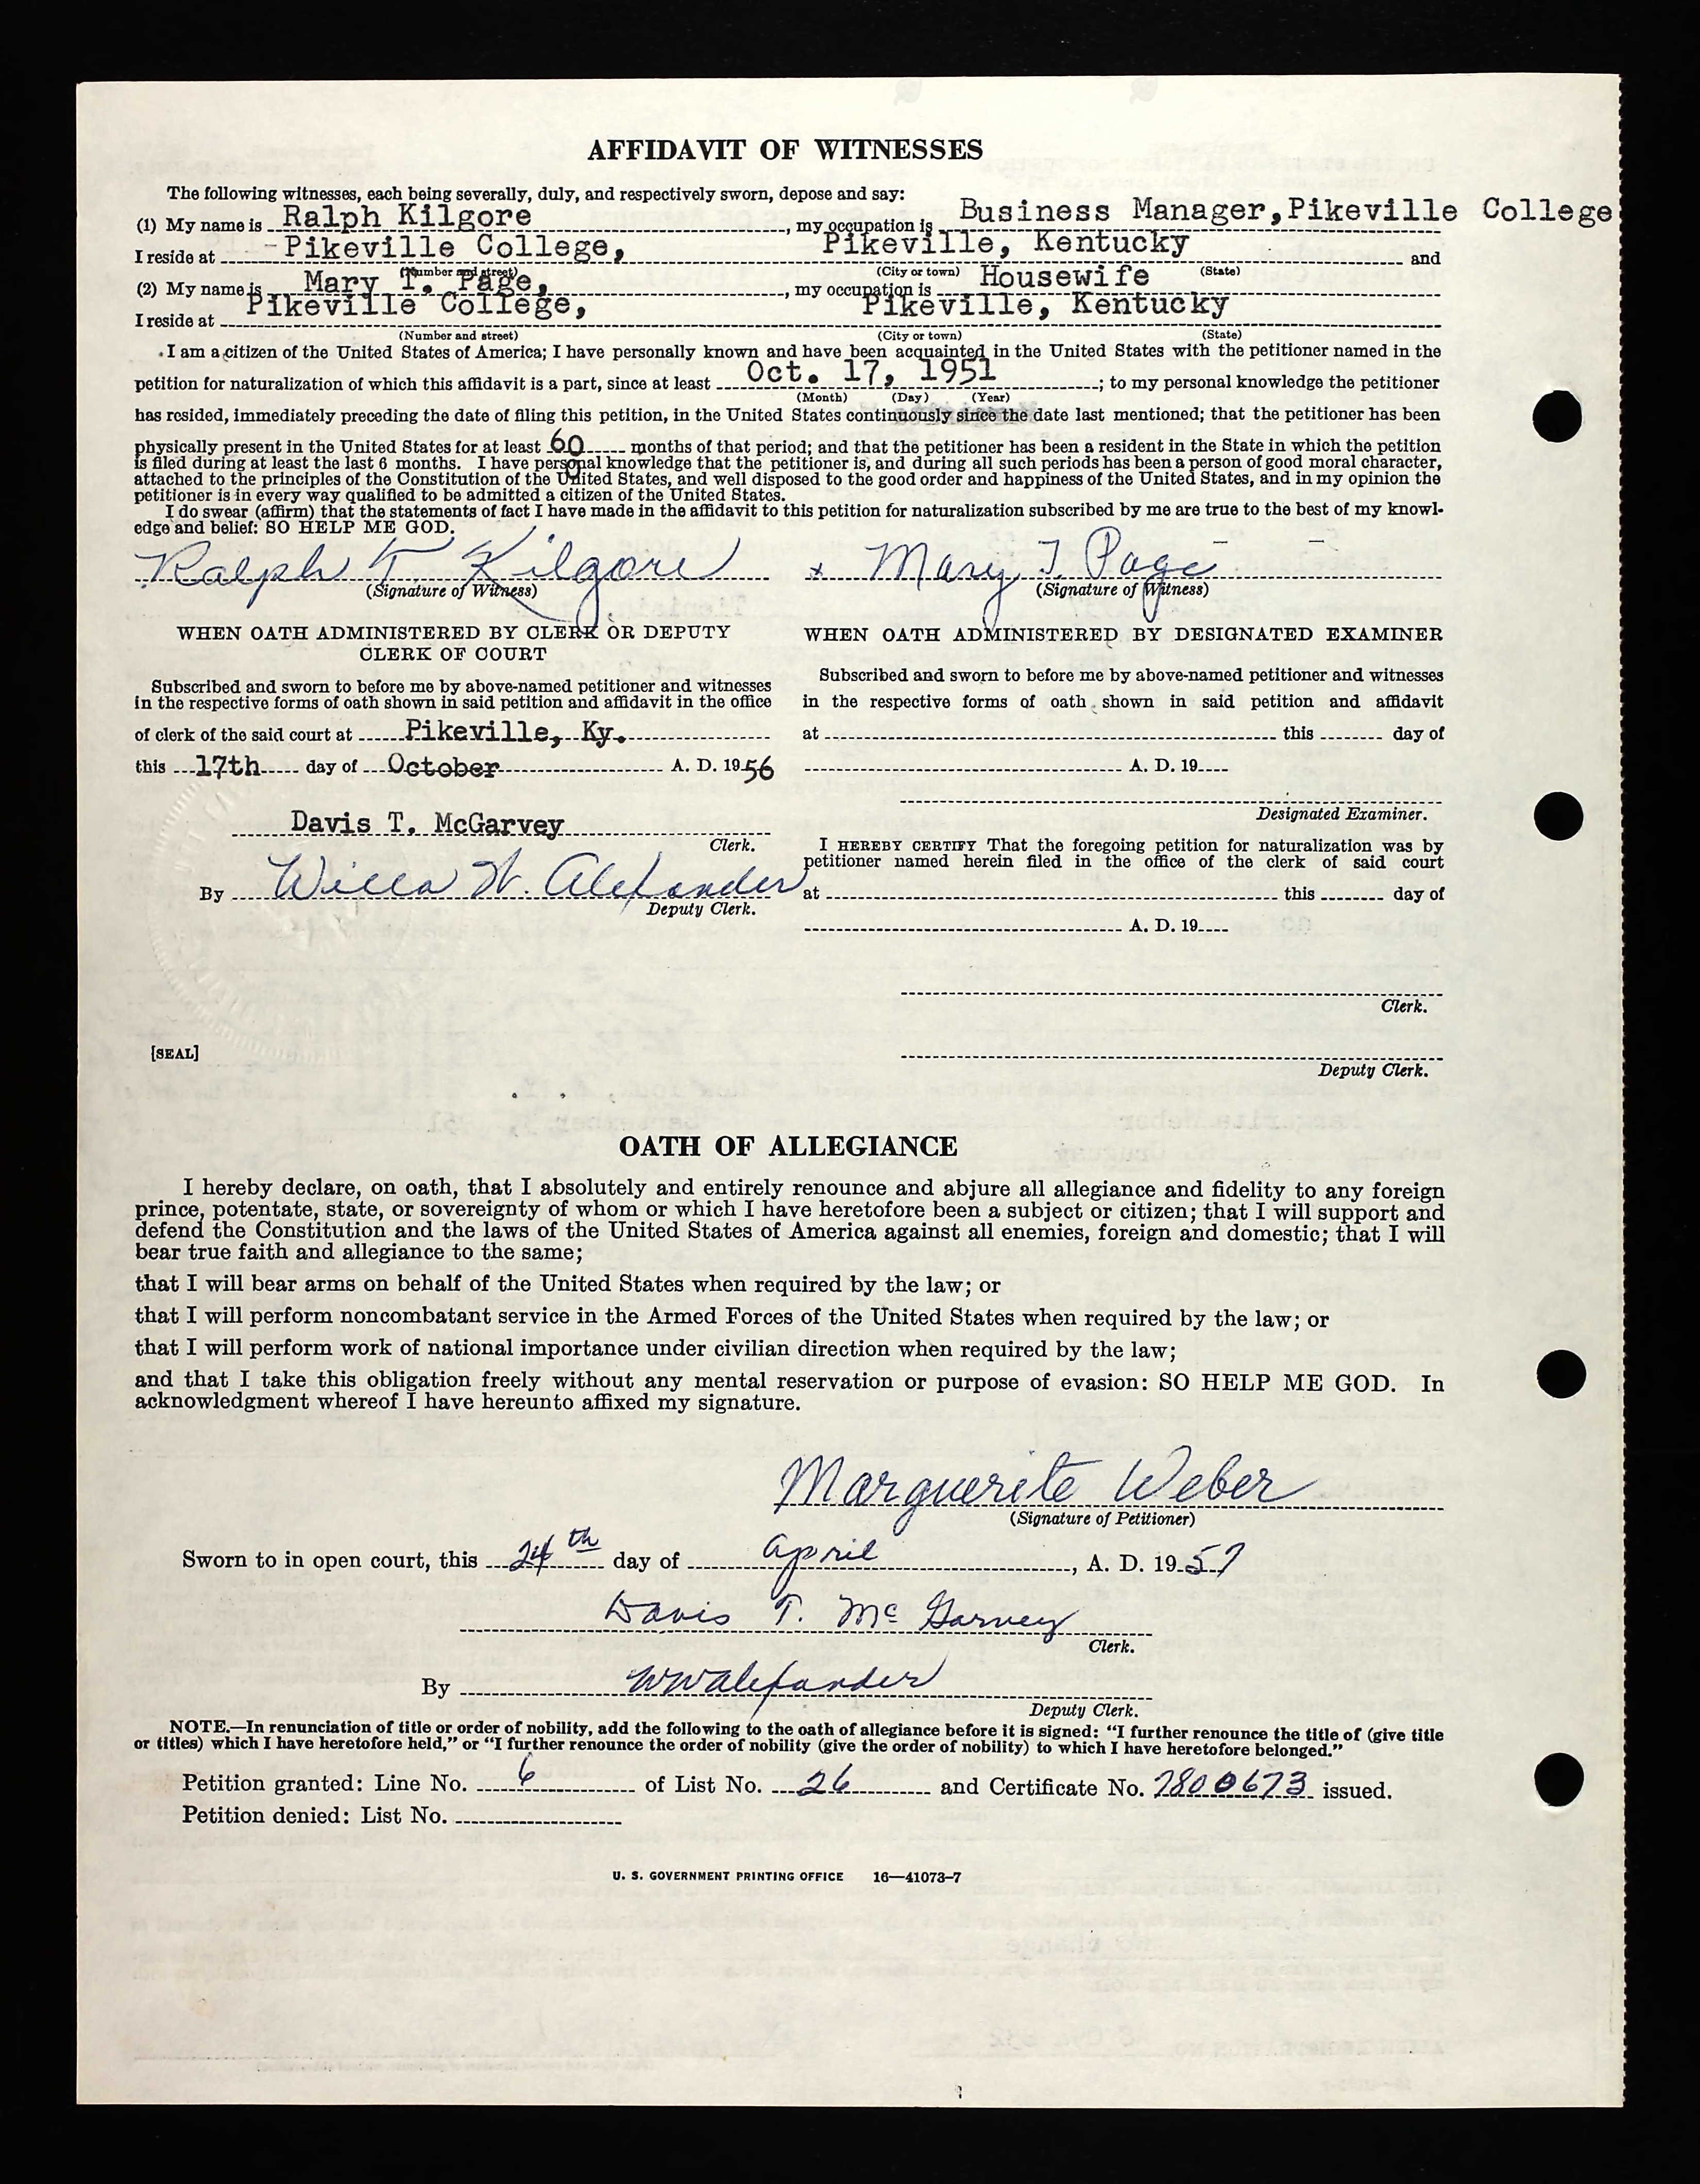 AFFIDAVIT OF WITNESSES
The following witnesses, each being severally, duly, and respectively sworn, depose and say:
(1) My name is Ralph Kilgore, my occupation is Business Manager, Pikeville College
I reside at Pikeville College, Pikeville, Kentucky and
(Number and street) (City or town) (State)
(2) My name is Mary T. Page, my occupation is Housewife
I reside at Pikeville College, Pikeville, Kentucky
(Number and street) (City or town) (State)
I am a citizen of the United States of America; I have personally known and have been acquainted in the United States with the petitioner named in the
petition for naturalization of which this affidavit is a part, since at least Oct. 17, 1951; to my personal knowledge the petitioner
(Month) (Day) (Year)
has resided, immediately preceding the date of filing this petition, in the United States continuously since the date last mentioned; that the petitioner has been
physically present in the United States for at least 60 months of that period; and that the petitioner has been a resident in the State in which the petition
is filed during at least the last 6 months. I have personal knowledge that the petitioner is, and during all such periods has been a person of good moral character,
attached to the principles of the Constitution of the United States, and well disposed to the good order and happiness of the United States, and in my opinion the
petitioner is in every way qualified to be admitted a citizen of the United States.
I do swear (affirm) that the statements of fact I have made in the affidavit to this petition for naturalization subscribed by me are true to the best of my knowl-
edge and belief: SO HELP ME GOD.
Ralph T. Kilgore x Mary T. Page
(Signature of Witness) (Signature of Witness)
WHEN OATH ADMINISTERED BY CLERK OR DEPUTY
CLERK OF COURT
Subscribed and sworn to before me by above-named petitioner and witnesses
in the respective forms of oath shown in said petition and affidavit in the office
of clerk of the said court at Pikeville, Ky.
this 17th day of October A. D. 1956
Davis T. McGarvey
Clerk.
By Willa W. Alexander
Deputy Clerk.
[SEAL]
WHEN OATH ADMINISTERED BY DESIGNATED EXAMINER
Subscribed and sworn to before me by above-named petitioner and witnesses
in the respective forms of oath shown in said petition and affidavit
at this day of
A. D. 19
Designated Examiner.
I HEREBY CERTIFY That the foregoing petition for naturalization was by
petitioner named herein filed in the office of the clerk of said court
at this day of
A. D. 19
Clerk.
Deputy Clerk.
OATH OF ALLEGIANCE
I hereby declare, on oath, that I absolutely and entirely renounce and abjure all allegiance and fidelity to any foreign
prince, potentate, state, or sovereignty of whom or which I have heretofore been a subject or citizen; that I will support and
defend the Constitution and the laws of the United States of America against all enemies, foreign and domestic; that I will
bear true faith and allegiance to the same;
that I will bear arms on behalf of the United States when required by the law; or
that I will perform noncombatant service in the Armed Forces of the United States when required by the law; or
that I will perform work of national importance under civilian direction when required by the law;
and that I take this obligation freely without any mental reservation or purpose of evasion: SO HELP ME GOD. In
acknowledgment whereof I have hereunto affixed my signature.
Marguerite Weber
(Signature of Petitioner)
Sworn to in open court, this 24th day of April, A. D. 1957
Davis T. McGarvey
Clerk.
By WWAlexander
Deputy Clerk.
NOTE.—In renunciation of title or order of nobility, add the following to the oath of allegiance before it is signed: "I further renounce the title of (give title
or titles) which I have heretofore held," or "I further renounce the order of nobility (give the order of nobility) to which I have heretofore belonged."
Petition granted: Line No. 6 of List No. 26 and Certificate No. 7800673 issued.
Petition denied: List No.
U. S. GOVERNMENT PRINTING OFFICE 16—41073-7